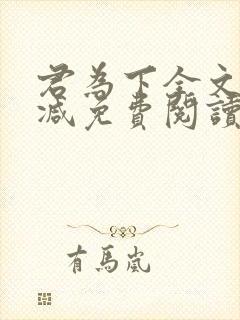 君為下全文
減免費閱讀
有馬嵐